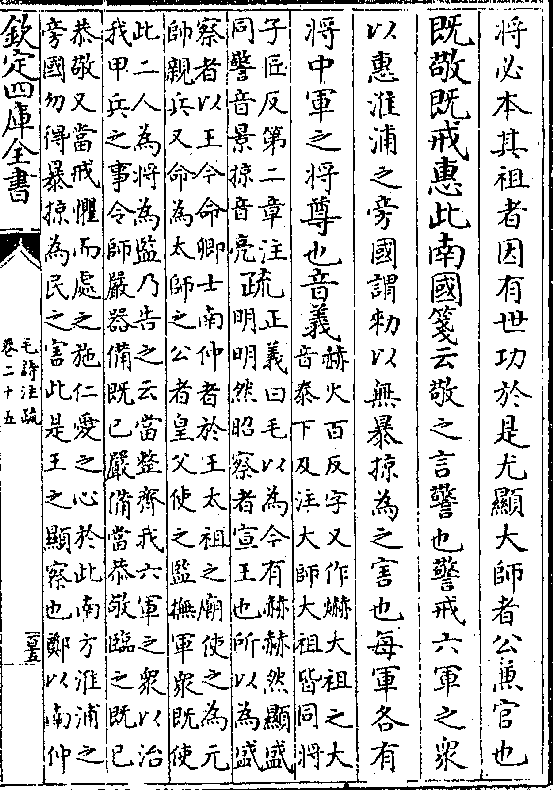 將必本其祖者因有世功於是尤顯大師者公兼官也
既敬既戒惠此南國箋云敬之言警也警戒六軍之衆
以惠淮浦之旁國謂勑以無暴掠為之害也每軍各有
將中軍之將尊也音義
赫火百反字又作爀大祖之大
音泰下及注大師大祖皆同將
子匠反第二章注
同警音景掠音亮
疏
正義曰毛以為今有赫赫然顯盛
明明然昭察者宣王也所以為盛
察者以王今命卿士南仲者於王太祖之廟使之為元
帥親兵又命為太師之公者皇父使之監撫軍衆既使
此二人為將為監乃告之云當整齊我六軍之衆以治
我甲兵之事令師嚴器備既已嚴備當恭敬臨之既已
恭敬又當戒懼而處之施仁愛之心於此南方淮浦之
旁國勿得暴掠為民之害此是王之顯察也鄭以南仲
欽定四庫全書
毛詩注疏
卷二十五